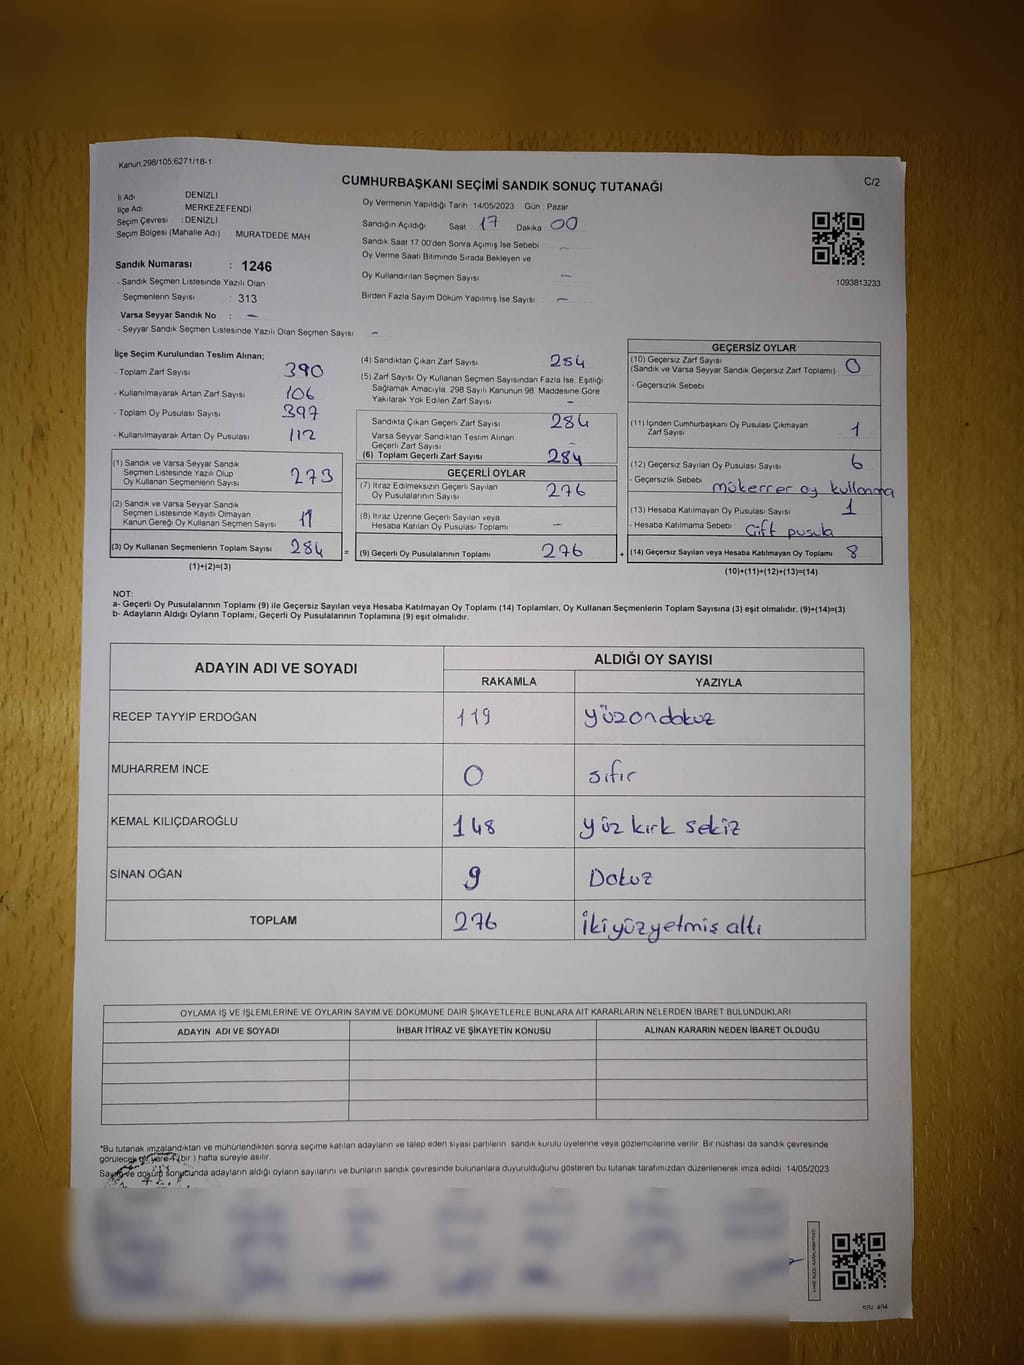 Kanun;298/105;6271/18-1
C/2
CUMHURBAŞKANI SEÇİMİ SANDIK SONUÇ TUTANAĞI
İl Adı DENİZLİ
İlçe Adı MERKEZEFENDİ
Seçim Çevresi : DENİZLİ
Seçim Bölgesi (Mahalle Adı) MURATDEDE MAH
Oy Vermenin Yapıldığı Tarih 14/05/2023 Gün : Pazar
Sandığın Açıldığı Saat 17 Dakika 00
Sandık Saat 17 00'den Sonra Açımış İse Sebebi
Oy Verme Saati Bitiminde Sırada Bekleyen ve
Oy Kullandırılan Seçmen Sayısı —
Birden Fazla Sayım Döküm Yapılmış İse Sayısı —
1093813233
Sandık Numarası : 1246
- Sandık Seçmen Listesinde Yazılı Olan
Seçmenlerin Sayısı : 313
Varsa Seyyar Sandık No : —
- Seyyar Sandık Seçmen Listesinde Yazılı Olan Seçmen Sayısı —
İlçe Seçim Kurulundan Teslim Alınan;
- Toplam Zarf Sayısı 390
- Kullanılmayarak Artan Zarf Sayısı 106
- Toplam Oy Pusulası Sayısı 397
- Kullanılmayarak Artan Oy Pusulası 112
(1) Sandık ve Varsa Seyyar Sandık
Seçmen Listesinde Yazılı Olup
Oy Kullanan Seçmenlerin Sayısı 273
(2) Sandık ve Varsa Seyyar Sandık
Seçmen Listesinde Kayıtlı Olmayan
Kanun Gereği Oy Kullanan Seçmen Sayısı 11
(3) Oy Kullanan Seçmenlerin Toplam Sayısı 284 =
(1)+(2)=(3)
(4) Sandıktan Çıkan Zarf Sayısı 284
(5) Zarf Sayısı Oy Kullanan Seçmen Sayısından Fazla İse, Eşitliği
Sağlamak Amacıyla, 298 Sayılı Kanunun 98 Maddesine Göre
Yakılarak Yok Edilen Zarf Sayısı —
Sandıkta Çıkan Geçerli Zarf Sayısı 284
Varsa Seyyar Sandıktan Teslim Alınan
Geçerli Zarf Sayısı —
(6) Toplam Geçerli Zarf Sayısı 284
GEÇERLİ OYLAR
(7) İtiraz Edilmeksizin Geçerli Sayılan
Oy Pusulalarının Sayısı 276
(8) İtiraz Üzerine Geçerli Sayılan veya
Hesaba Katılan Oy Pusulası Toplamı —
(9) Geçerli Oy Pusulalarının Toplamı 276 +
GEÇERSİZ OYLAR
(10) Geçersiz Zarf Sayısı 0
(Sandık ve Varsa Seyyar Sandık Geçersiz Zarf Toplamı)
- Geçersizlik Sebebi
(11) İçinden Cumhurbaşkanı Oy Pusulası Çıkmayan
Zarf Sayısı 1
(12) Geçersiz Sayılan Oy Pusulası Sayısı 6
- Geçersizlik Sebebi mükerrer oy kullanma
(13) Hesaba Katılmayan Oy Pusulası Sayısı 1
- Hesaba Katılmama Sebebi Çift pusula
(14) Geçersiz Sayılan veya Hesaba Katılmayan Oy Toplamı 8
(10)+(11)+(12)+(13)=(14)
NOT:
a- Geçerli Oy Pusulalarının Toplamı (9) ile Geçersiz Sayılan veya Hesaba Katılmayan Oy Toplamı (14) Toplamları, Oy Kullanan Seçmenlerin Toplam Sayısına (3) eşit olmalıdır. (9)+(14)=(3)
b- Adayların Aldığı Oyların Toplamı, Geçerli Oy Pusulalarının Toplamına (9) eşit olmalıdır.
ADAYIN ADI VE SOYADI ALDIĞI OY SAYISI
RAKAMLA YAZIYLA
RECEP TAYYIP ERDOĞAN 119 yüzondokuz
MUHARREM İNCE 0 sıfır
KEMAL KILIÇDAROĞLU 148 yüz kırk sekiz
SİNAN OĞAN 9 Dokuz
TOPLAM 276 ikiyüzyetmiş altı
OYLAMA İŞ VE İŞLEMLERİNE VE OYLARIN SAYIM VE DÖKÜMÜNE DAİR ŞİKAYETLERLE BUNLARA AİT KARARLARIN NELERDEN İBARET BULUNDUKLARI
ADAYIN ADI VE SOYADI İHBAR İTİRAZ VE ŞİKAYETİN KONUSU ALINAN KARARIN NEDEN İBARET OLDUĞU
*Bu tutanak imzalandıktan ve mühürlendikten sonra seçime katılan adayların ve talep eden siyasi partilerin sandık kurulu üyelerine veya gözlemcilerine verilir Bir nüshası da sandık çevresinde
görülecek bir yere 1 (bir) hafta süreyle asılır
Sayım ve döküm sonucunda adayların aldığı oyların sayılarını ve bunların sandık çevresinde bulunanlara duyurulduğunu gösteren bu tutanak tarafımızdan düzenlenerek imza edildi 14/05/2023